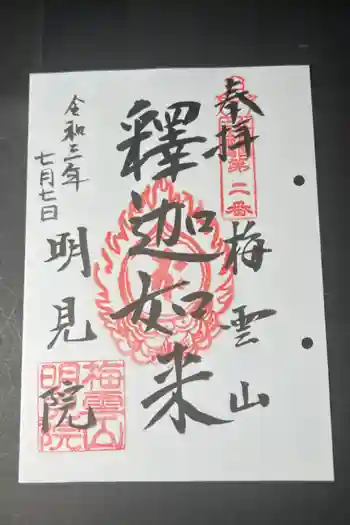 奉拝
第二番
梅雲山
釋迦如来
令和三年
七月七日
明見院
梅雲山
明見院